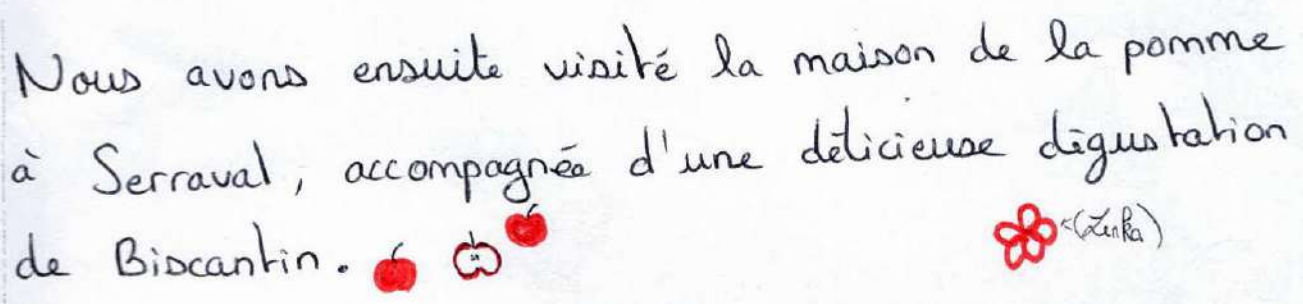 Nous avons ensuite visité la maison de la pomme
à Serraval, accompagnée d'une délicieuse dégustation
de Biscantin.
(Zenka)